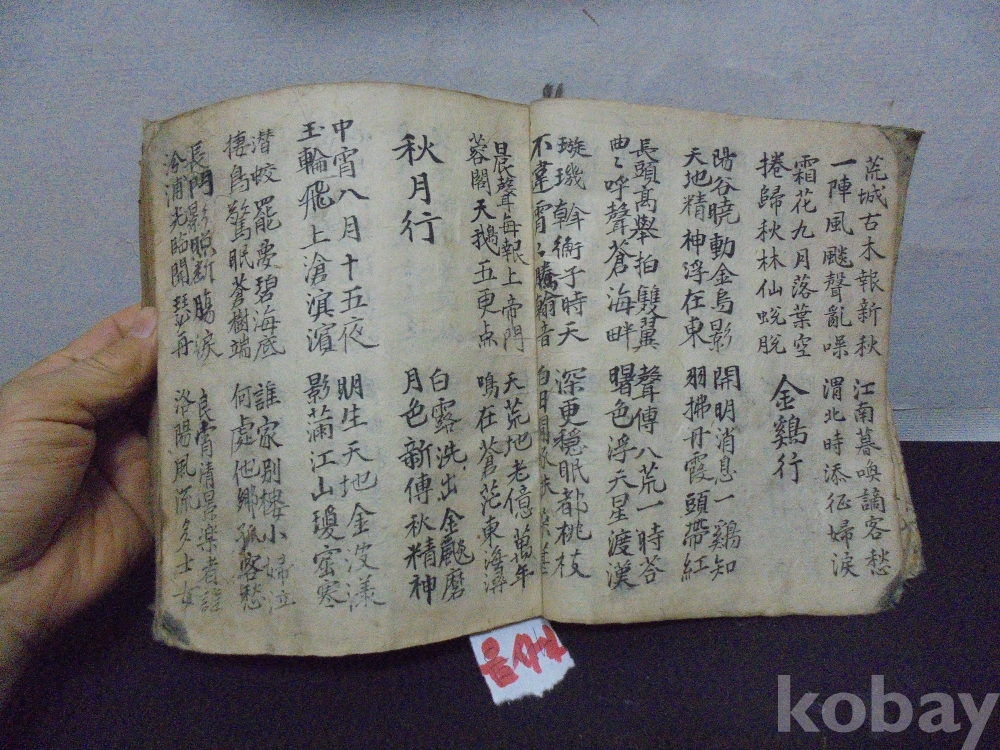 荒城古木報新秋 江南暮喚謫客愁
一陣風飈聲亂噪 渭北時添征婦淚
霜花九月落葉空
捲歸秋林仙蛻脫
金鷄行
陽谷曉動金烏影 開明消息一鷄知
天地精神浮在東 羽拂丹霞頭帶紅
長頭高擧拍雙翼 聲傳八荒一時答
曲々呼聲蒼海畔 曙色浮天星渡漢
璇璣斡衡子時天 深更穩眠都桃枝
不韋霄々騰翰音
晨聲每報上帝門 天荒地老億萬年
蓉閣天鵝五更点 鳴在蒼茫東海
秋月行
白露洗出金飈磨
月色新傳秋精神
中宵八月十五夜 明生天地金波漾
玉輪飛上滄濱 影滿江山瓊窓寒
潛蛟罷夢碧海底 誰家別樓小婦泣
棲鳥驚眠蒼樹端 何處他鄕孤客愁
長門影照斷腸淚 良宵淸景樂者誰
洛陽風流多士女
음사난
kobay